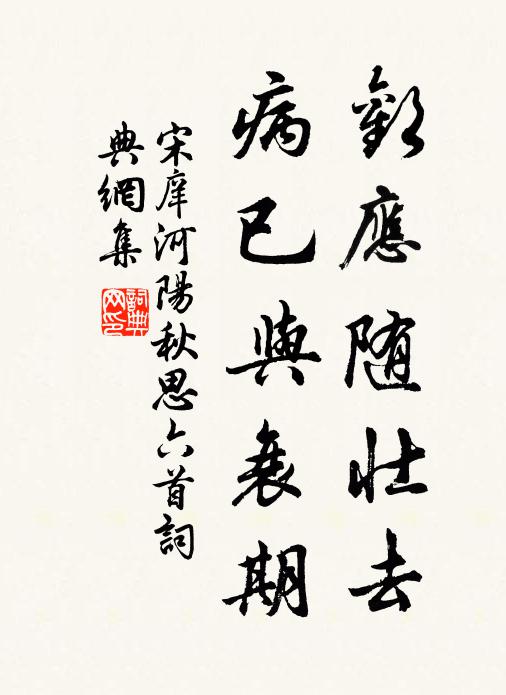 歡應隨壯去
病已與衰期
宋庠河陽秋思六首詞
典網集
詞典網印